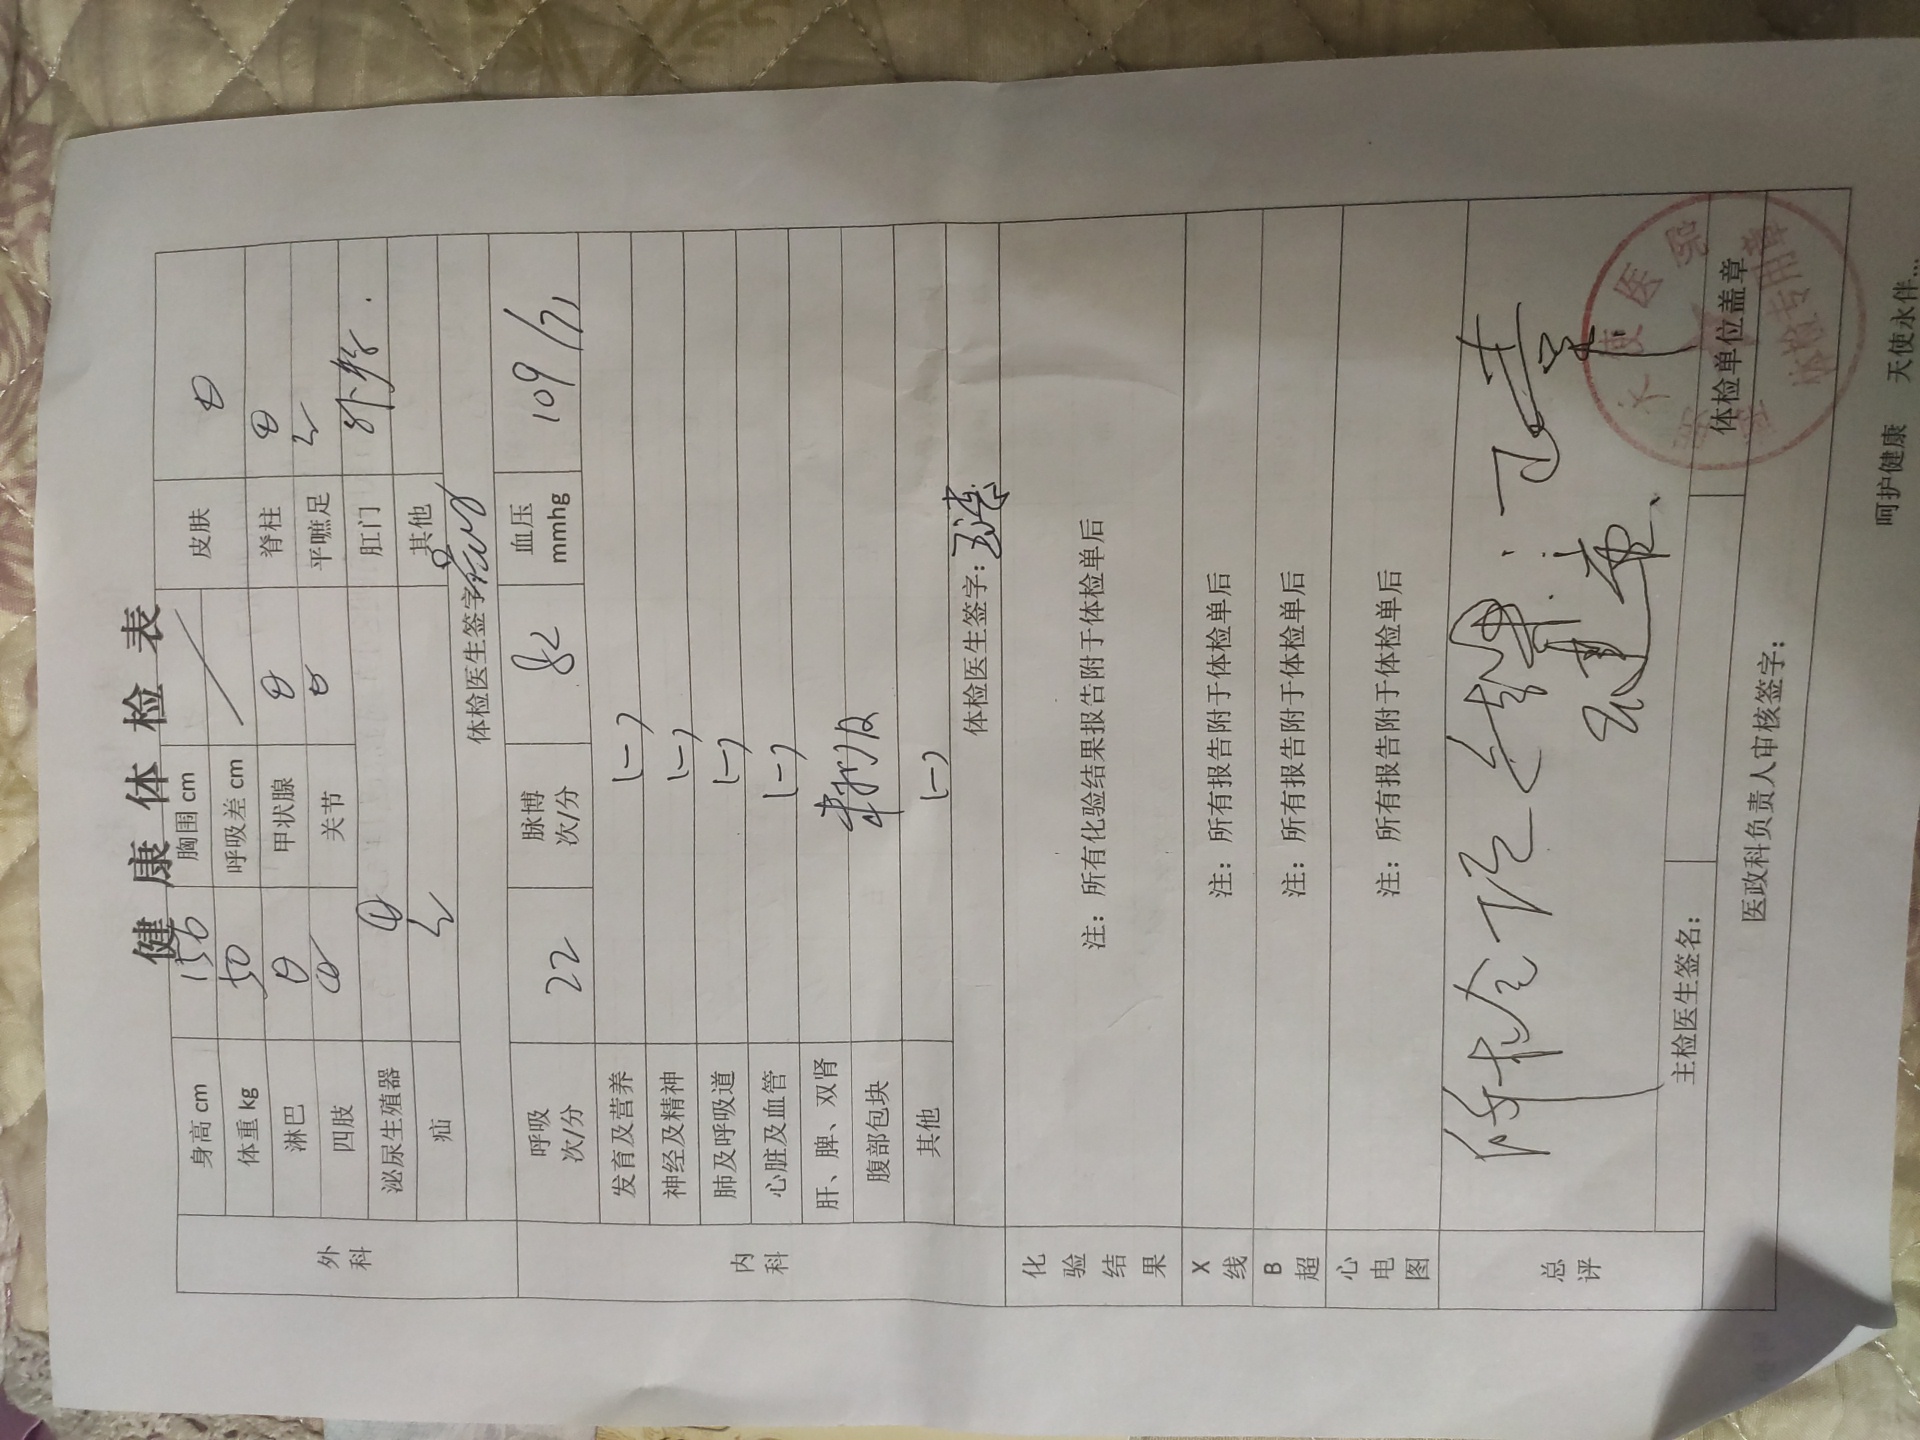 健康体检表
外科
身高cm 156 胸围cm 皮肤
体重kg 50 呼吸差cm
淋巴 甲状腺 脊柱
四肢 关节 平蹠足
泌尿生殖器 肛门 外痔.
疝 其他
体检医生签字
内科
呼吸 次/分 22 脉博 次/分 82 血压 mmhg 109/71
发育及营养 (-)
神经及精神 (-)
肺及呼吸道 (-)
心脏及血管 (-)
肝、脾、双肾 未触及
腹部包块
其他 (-)
体检医生签字:
化验结果 注:所有化验结果报告附于体检单后
X线 注:所有报告附于体检单后
B超 注:所有报告附于体检单后
心电图 注:所有报告附于体检单后
总评 体检结果:正常
建章
主检医生签名: 体检单位盖章
医政科负责人审核签字:
天使医院
体检专用章
呵护健康 天使永伴...